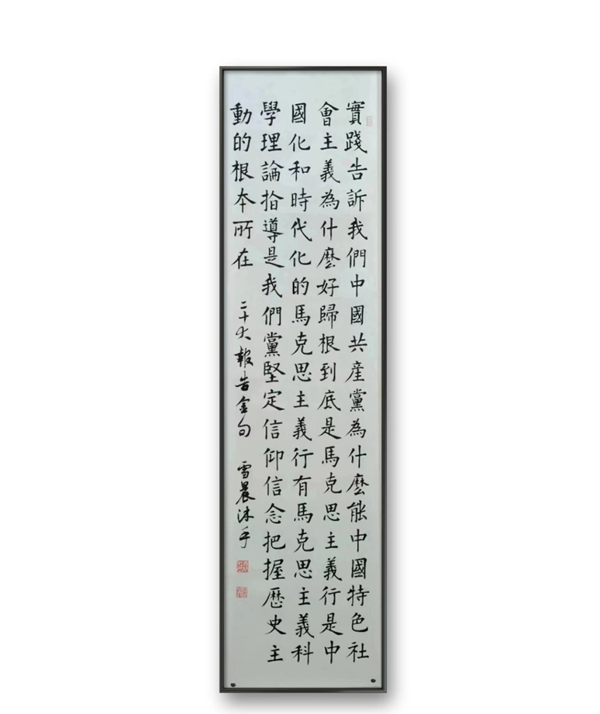 實踐告訴我們中國共産黨為什麽能中國特色社
會主義為什麽好歸根到底是馬克思主義行是中
國化和時代化的馬克思主義行有馬克思主義科
學理論指導是我們黨堅定信仰信念把握歷史主
動的根本所在
二十大報告金句
雪晨沐手